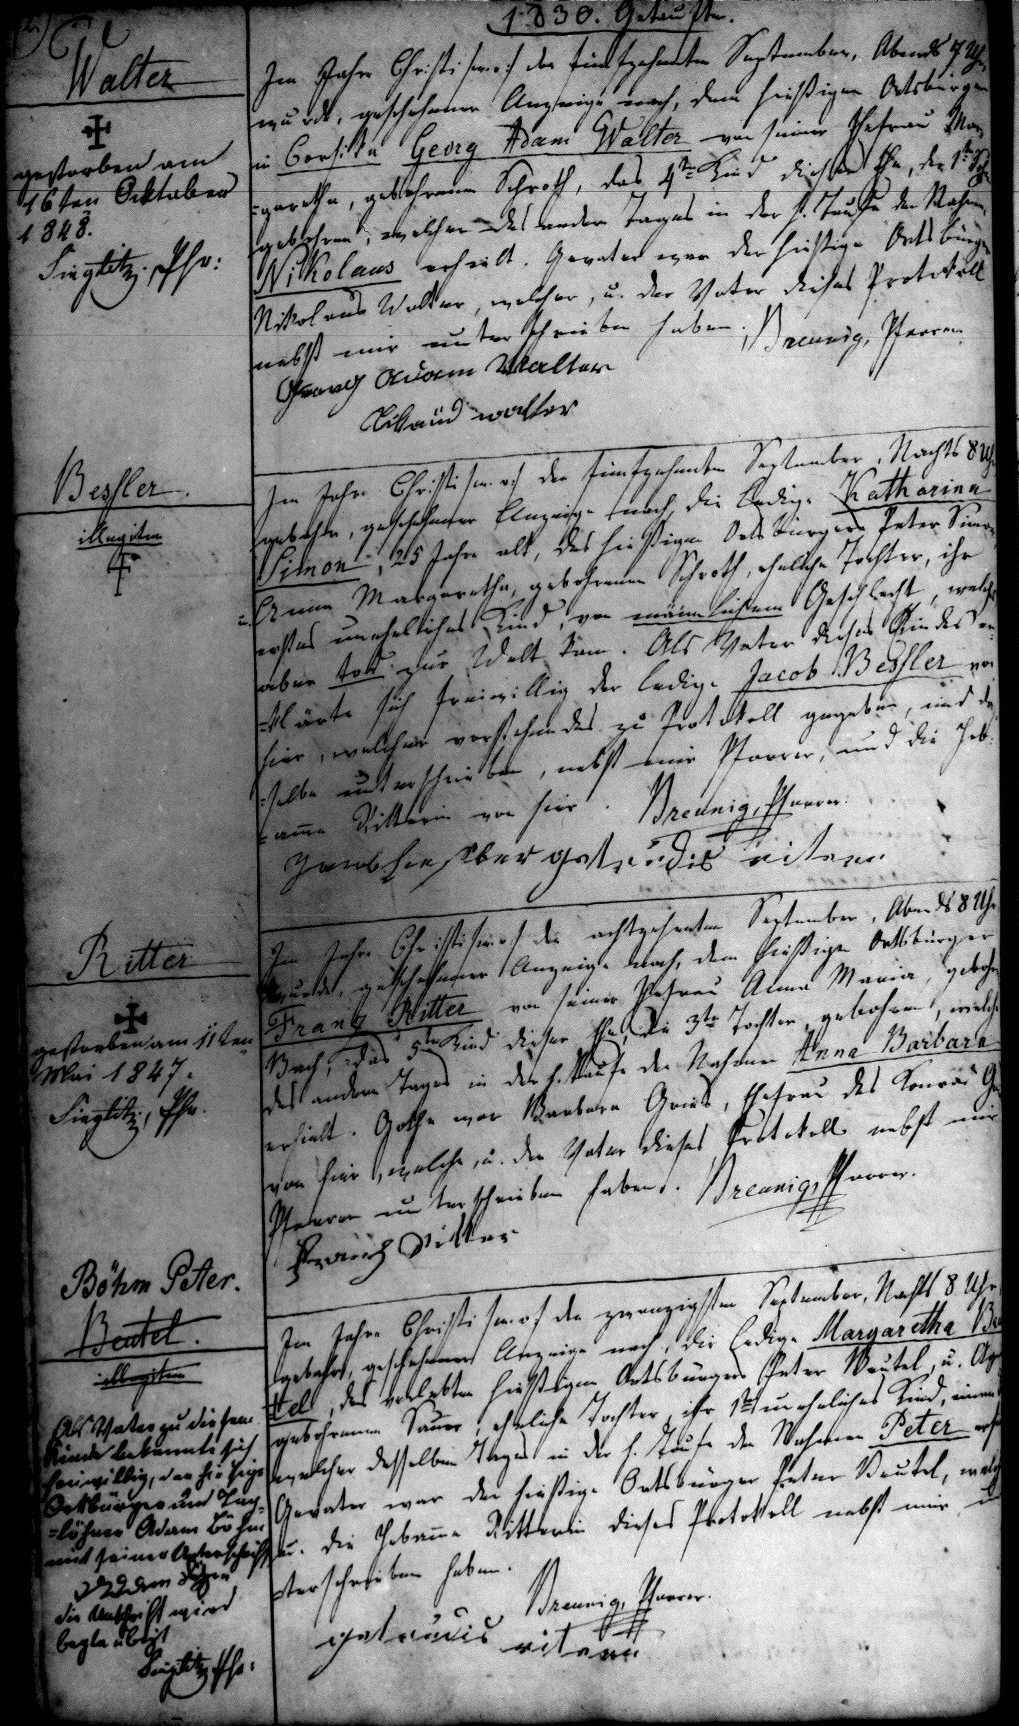 1830. Getaufte.
Walter
gestorben am
16ten Oktober
1848.
Sieglitz, Pfr:
Im Jahre Christi s.v.o.f den fünfzehnten September, Abends 7 Uhr
wurde, geschehener Anzeige nach, dem hießigen Ortsbürger
in Corsika Georg Adam Walter von seiner Ehefrau Mar-
-garetha, gebohrenen Schroth, das 4te Kind dieser Ehe, der 1te
gebohren, welcher des andern Tages in der h. Taufe den Nahmen
Nikolaus erhielt. Gevater war der hießige Ortsbürger
Nikolaus Walter, welcher, u. der Vater dieses Protokoll
nebst mir unterschrieben haben. Breunig, Pfarrer.
Georg Adam Walter
walter
Bessler.
illegitim
Im Jahre Christi s.v.o.f den fünfzehnten September, Nachts 8 Uhr
gebahr, geschehener Anzeige nach, die ledige Katharina
Simon, 25 Jahre alt, des hießigen Ortsbürgers Peter Simon
u. Anna Margaretha, gebohrenen Schroth, eheliche Tochter, ihr
erstes uneheliches Kind, von männlichem Geschlecht, welches
aber tod zur Welt kam. Als Vater dieses Kindes er-
-klärte sich freiwillig der ledige Jacob Bessler von
hier, welcher vorstehendes zu Protokoll gegeben, und das-
-selbe unterschrieben, nebst mir Pfarrer, und die Heb-
-amme Ritterin von hier. Breunig, Pfarrer.
gatrudis riterin
Ritter
gestorben am 11ten
Mai 1847.
Sieglitz, Pfr.
Im Jahre Christi s.v.o.f den achtzehnten September, Abends 8 Uhr
wurde, geschehener Anzeige nach, dem hießigen Ortsbürger
Franz Ritter von seiner Ehefrau Anna Maria, gebohr.
Bach, das 5te Kind dieser Ehe, die 3te Tochter, gebohren, welche
des andern Tages in der h. Taufe den Nahmen Anna Barbara
erhielt. Gothe war Barbara Gries, Ehefrau des Konrad
von hier, welche, u. der Vater dieses Protokoll nebst mir
Pfarrer unterschrieben haben. Breunig, Pfarrer.
Franz Ritter
Böhm Peter.
Beutel.
illegitim
Als Vater zu diesem
Kinde bekannte sich
freiwillig, der hiesige
Ortsbürger und Tag-
-löhner Adam Böhm
mit seiner Unterschrift
Adam Böhm
die Unterschrift wird
beglaubigt
Sieglitz Pfr:
Im Jahre Christi s.v.o.f den zwanzigsten September, Nachts 8 Uhr
gebahr, geschehener Anzeige nach, die ledige Margaretha Beu-
tel, des verlebten hießigen Ortsbürgers Peter Beutel, u.
gebohrenen Sauer, eheliche Tochter, ihr 1tes uneheliches Kind, einen
welcher desselben Tages in der h. Taufe den Nahmen Peter
Gevater war der hießige Ortsbürger Peter Beutel, welcher
u. die Hebamme Ritterin dieses Protokoll nebst mir un-
-terschrieben haben.
Breunig, Pfarrer.
gatrudis riterin